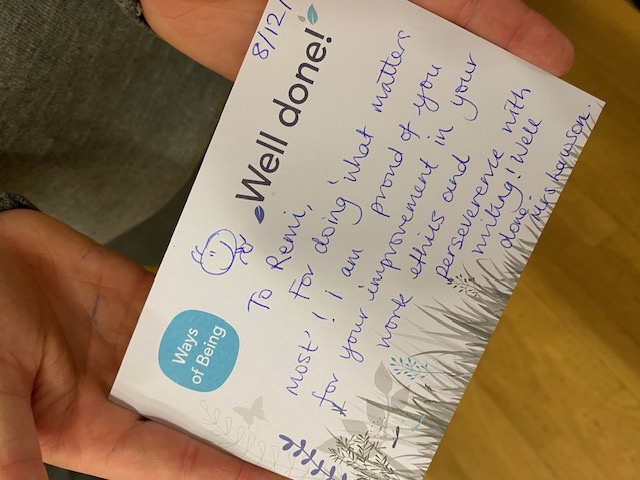 8/12/
Well done!
Ways
of Being
To Remi,
For doing 'what matters
most'! I am proud of you
for your improvement in your
work ethics and
perseverence with
writing! Well
done.
Mrs Lawson.